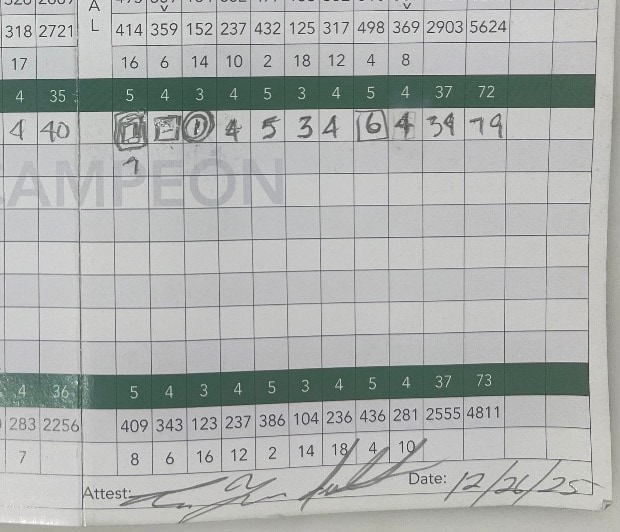 A
L
318 2721 414 359 152 237 432 125 317 498 369 2903 5624
17 16 6 14 10 2 18 12 4 8
4 35 5 4 3 4 5 3 4 5 4 37 72
4 40 1 4 5 3 4 6 4 39 79
CAMPEÓN
4 36 5 4 3 4 5 3 4 5 4 37 73
283 2256 409 343 123 237 386 104 236 436 281 2555 4811
7 8 6 16 12 2 14 18 4 10
Attest: Date: 12/26/25